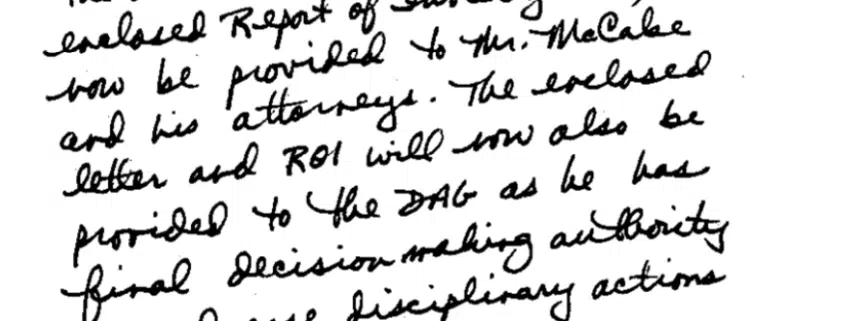 enclosed Report of
now be provided to Mr. McCabe
and his attorneys. The enclosed
letter and ROI will now also be
provided to the DAG as he has
final decision making authority
disciplinary actions